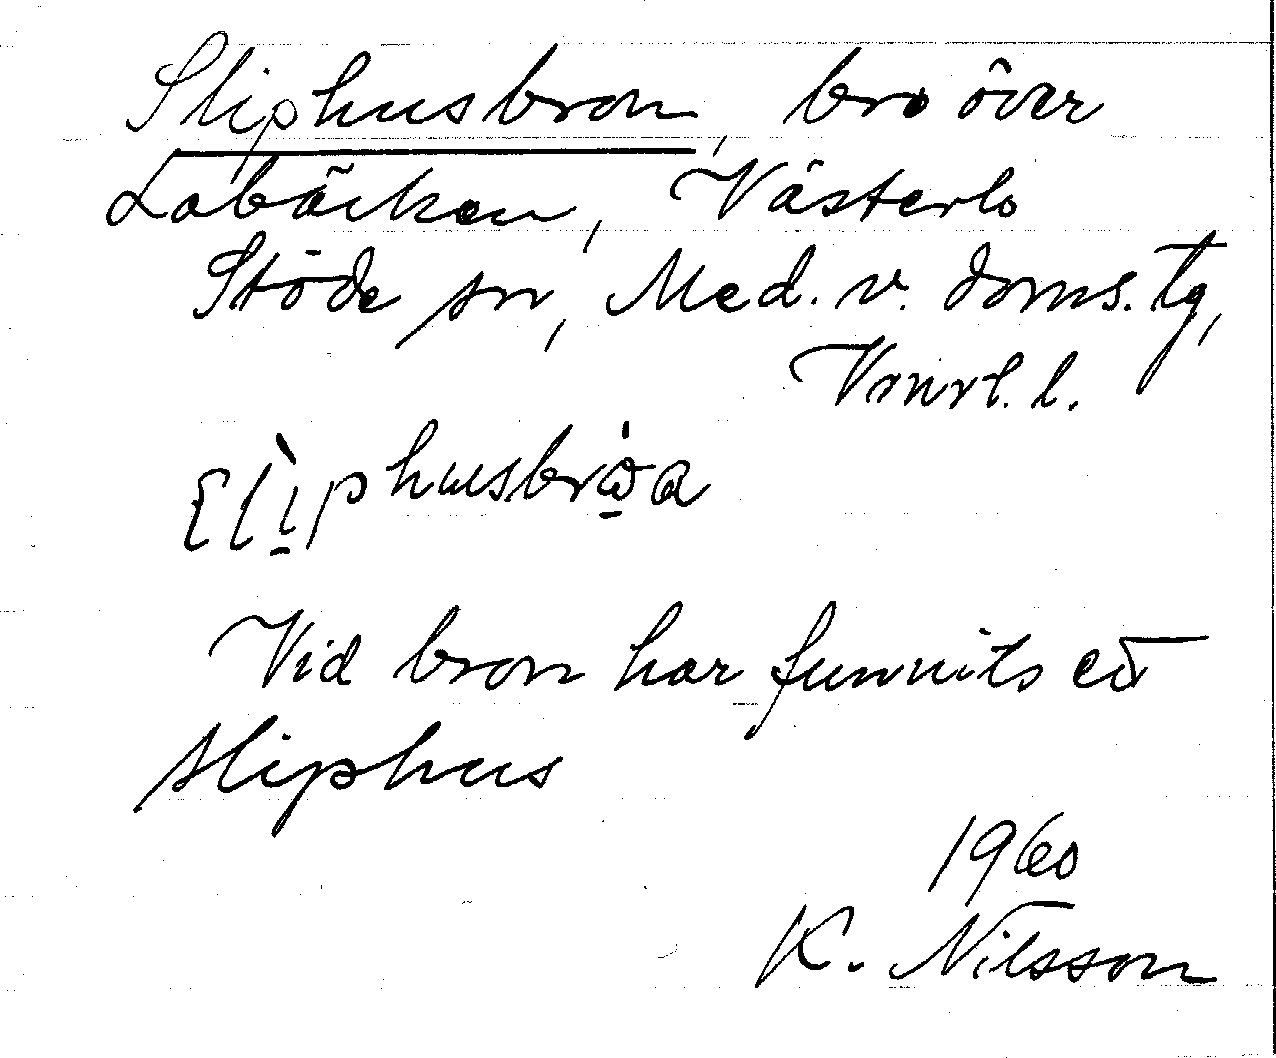 Sliphusbron, bro över
Lobäcken, Västerlo
Stöde sn, Med. v. doms. tg,
Vnrl. l.
sliphusbròa
Vid bron har funnits ett
sliphus
1960
K. Nilsson